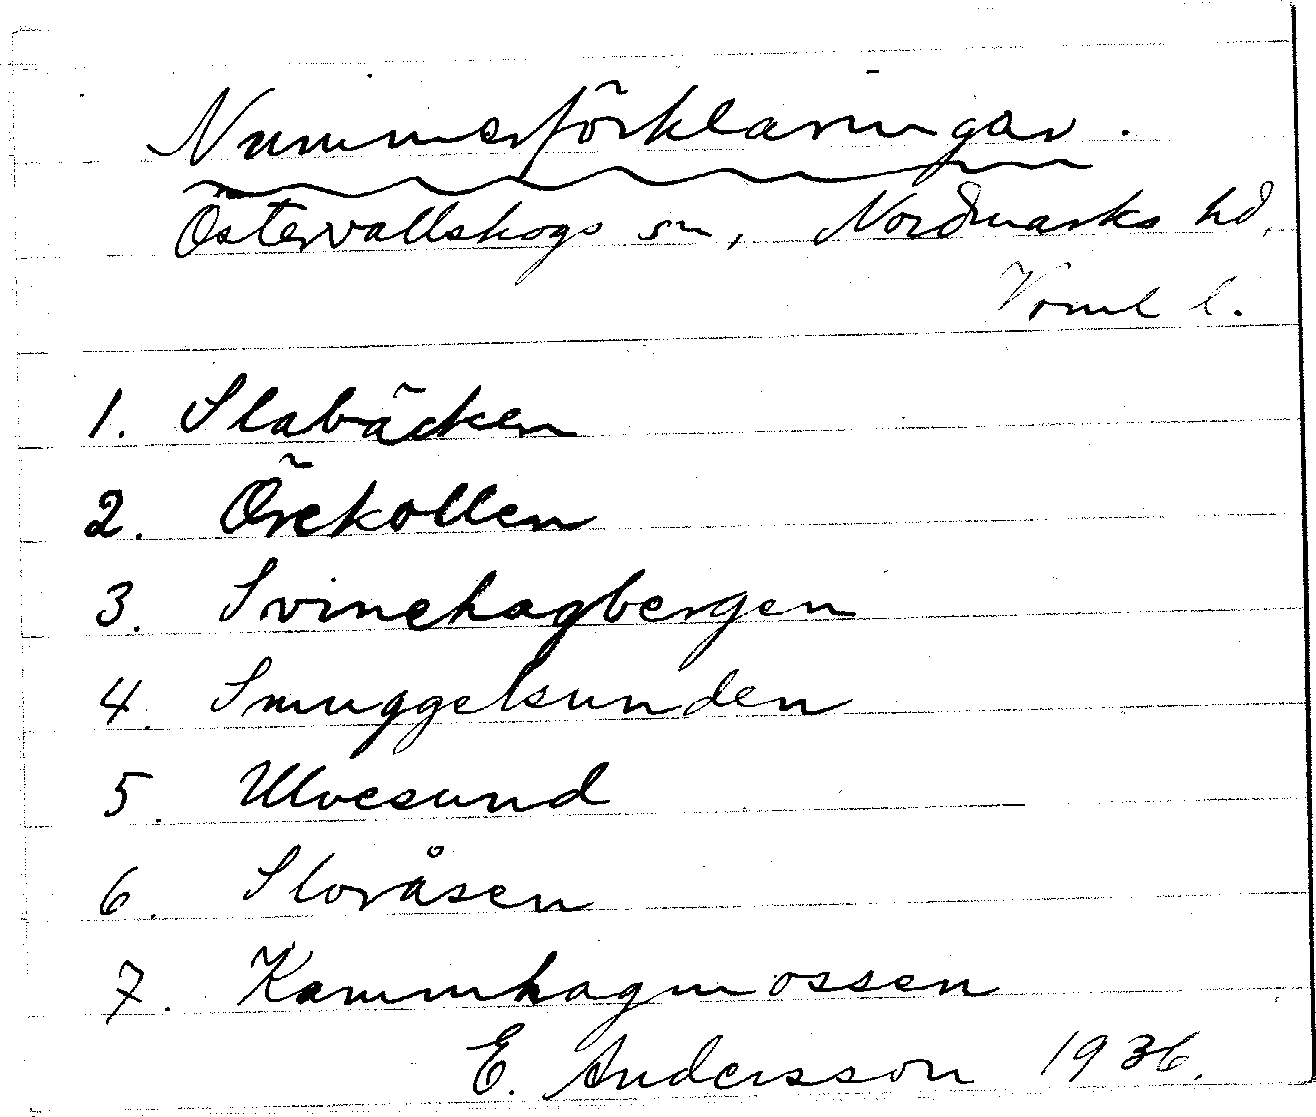 Nummerförklaringar.
Östervallskogs sn, Nordmarks hd,
Vrml l.
1. Slabäcken
2. Örekollen
3. Svinehagbergen
4. Smuggelsunden
5. Ulvesund
6. Sloråsen
7. Kammhagmossen
E. Andersson 1936.